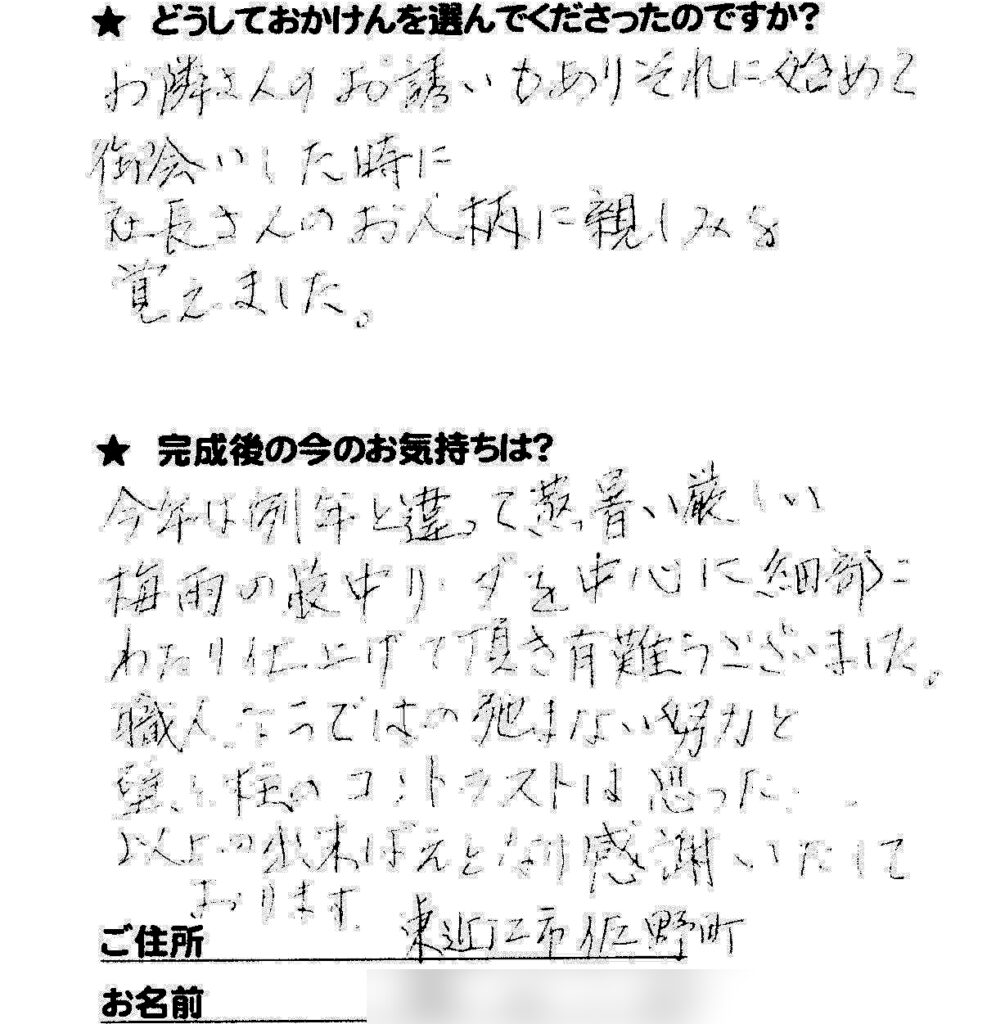 ★ どうしておかけんを選んでくださったのですか?
お隣さんのお誘いもありそれに始めて
御会いした時に
社長さんのお人柄に親しみを
覚えました。
★ 完成後の今のお気持ちは?
今年は例年と違って蒸暑い厳しい
梅雨の最中り・ダを中心に細部に
わたり仕上げて頂き有難うございました。
職人ならではの弛まない努力と
壁と柱のコントラストは思った
以上の出来ばえとなり感謝いたして
おります.
ご住所 東近江市佐野町
お名前